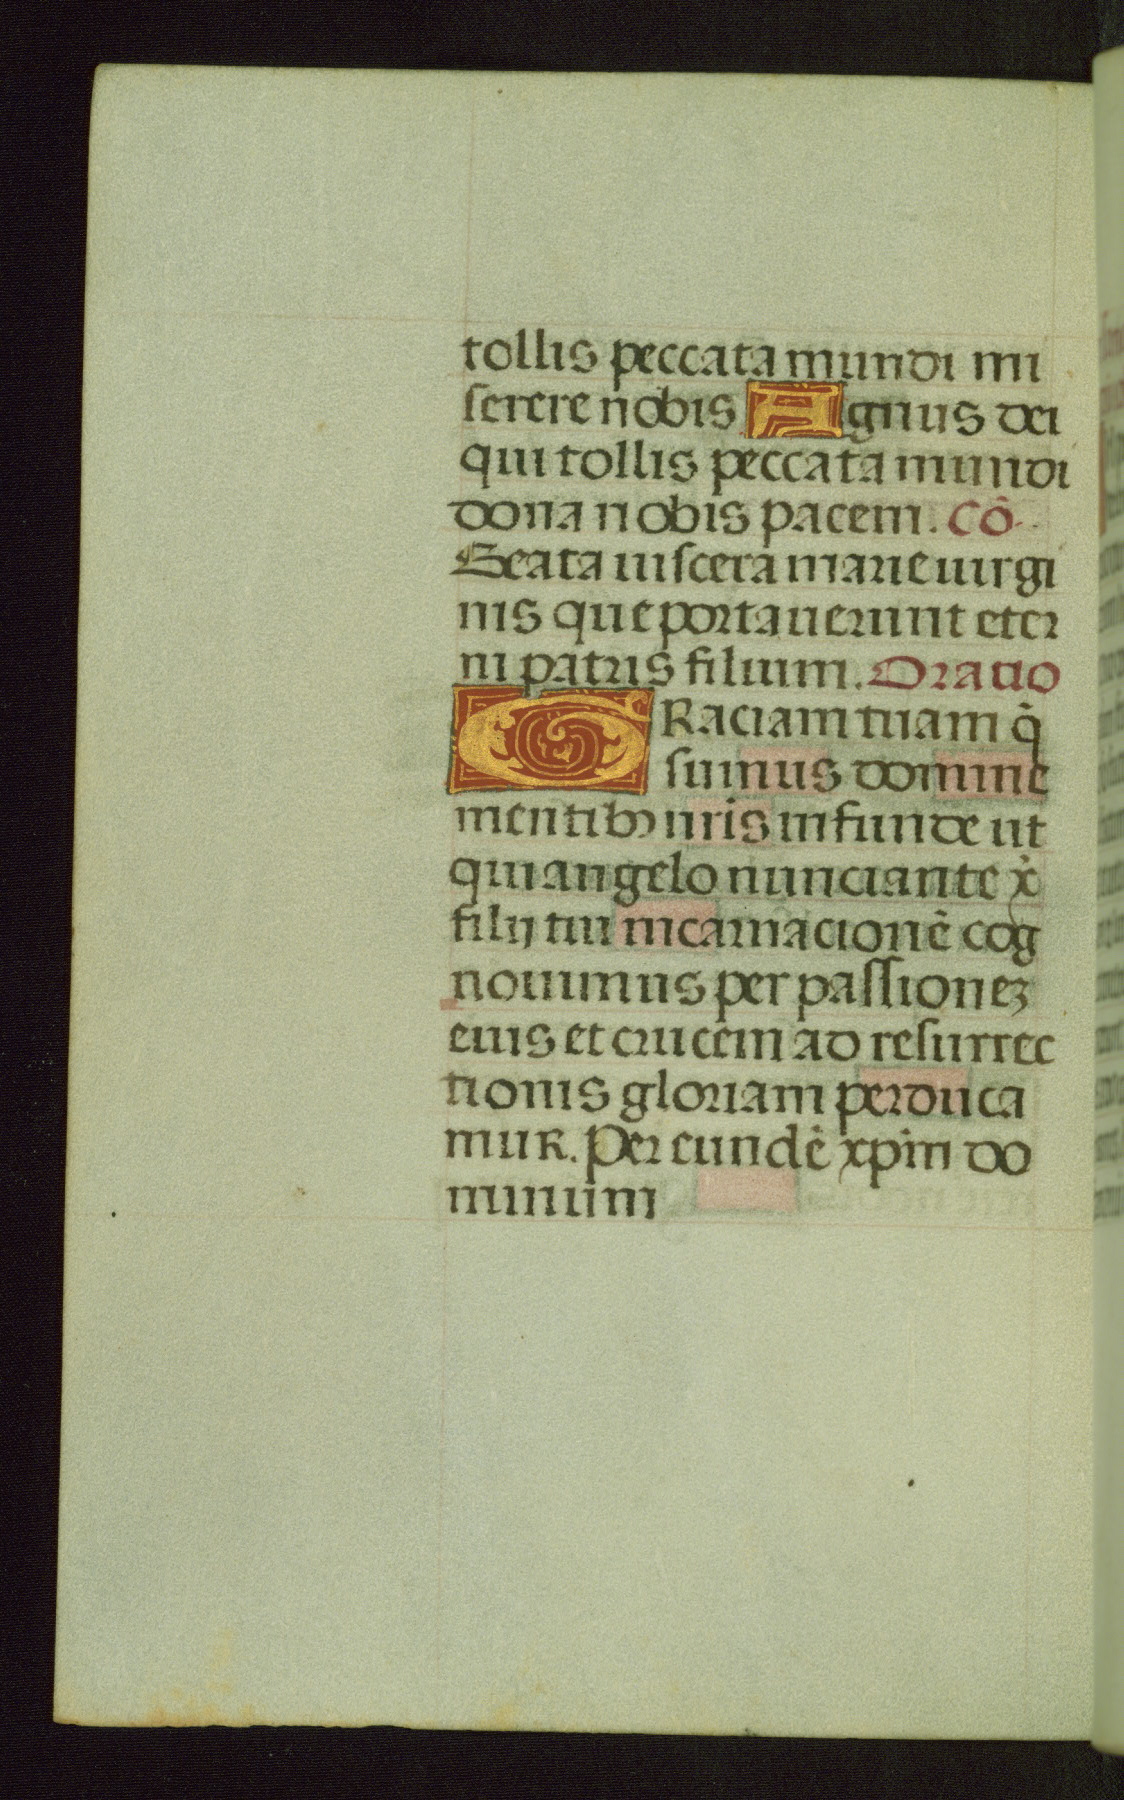 tollis peccata mundi mi
serere nobis Agnus dei
qui tollis peccata mundi
dona nobis pacem. Cō
Beata uiscera marie uirgi
nis que portauerunt eter
ni patris filium. Oratio
GRaciam tuam q̄
sumus domine
mentibꝫ nr̄is infunde ut
qui angelo nunciante xp̄i
filij tui incarnacionē cog
nouimus per passioneꝫ
eius et crucem ad resurrec
tionis gloriam perduca
mur. Per eundē xp̄m do
minum